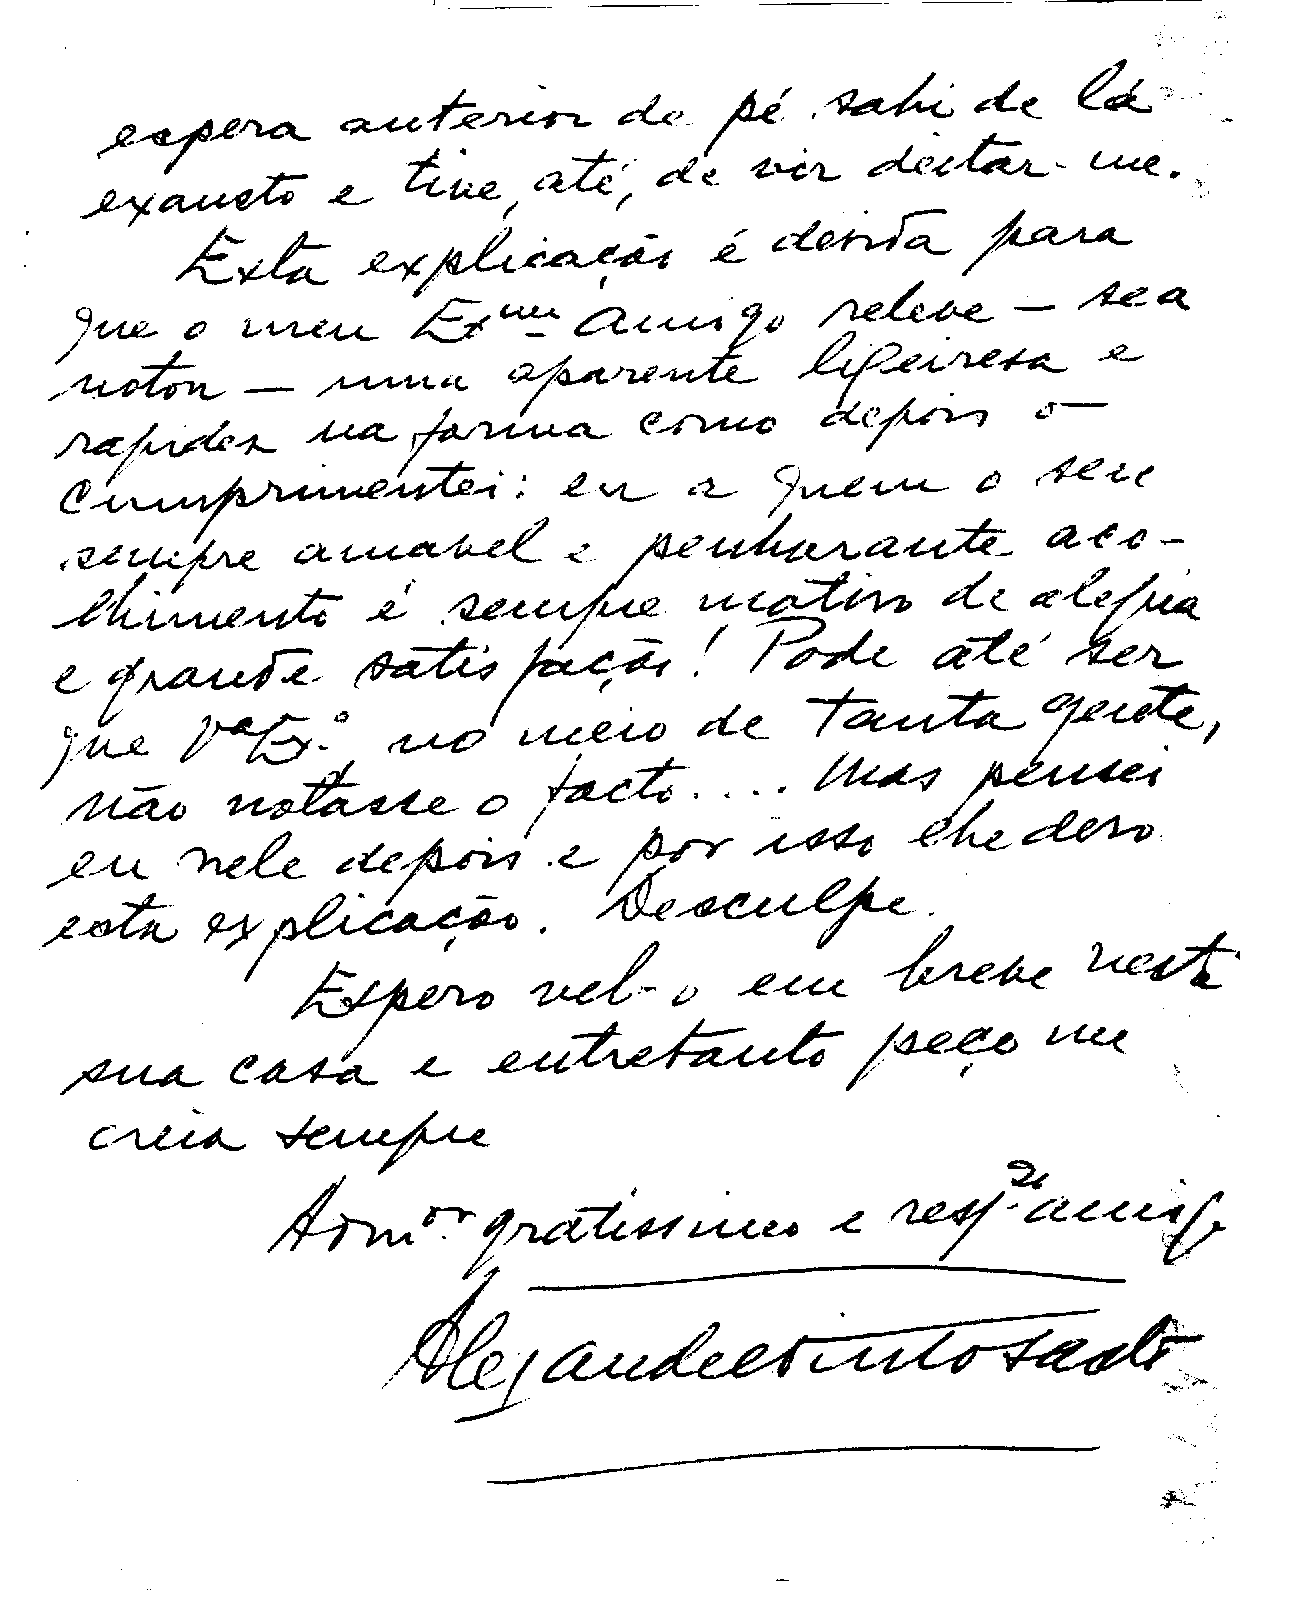 espera anterior de pé sahi de lá
exausto e tive, até, de vir deitar-me.
Esta explicação é devida para
que o meu Exmo Amigo releve — se a
notou — uma aparente ligeiresa e
rapidez na forma como depois o
cumprimentei: eu a quem o seu
sempre amavel e penhorante aco-
lhimento é sempre motivo de alegria
e grande satisfação! Pode até ser
que Va Exa, no meio de tanta gente,
não notasse o facto.... Mas pensei
eu nele depois e por isso lhe devo
esta explicação. Desculpe.
Espero vel-o em breve nesta
sua casa e entretanto peço me
creia sempre
Admor. gratissimo e respdo amigo